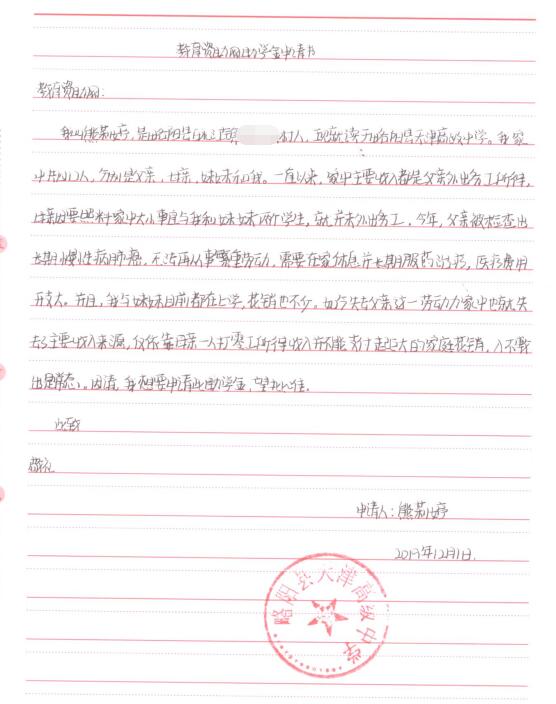 教育资助网助学金申请书
教育资助网:
我叫熊茹婷,是略阳县白水江镇 村人,现就读于略阳县天津高级中学。我家
中共四口人,分别是父亲,母亲,妹妹和我。一直以来,家中主要收入都是父亲外出务工所得,
母亲因要照料家中大小事宜与我和妹妹两个学生,就并未外出务工。今年,父亲被检查出
长期慢性病肺癌,无法再从事繁重劳动,需要在家休息并长期服药治疗,医疗费用
开支大。并且,我与妹妹目前都在上学,花销也不少。如今失去父亲这一劳动力家中也就失
去了主要收入来源,仅依靠母亲一人打零工所得收入并不能支付起巨大的家庭花销,入不敷
出是常态。因清,我想要申请此助学金,望批准。
此致
敬礼
申请人:熊茹婷
2019年12月1日.
略阳县天津高级中学